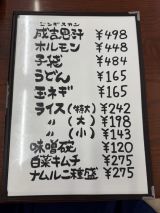 ジンギスカン
成吉思汁 ¥498
ホルモン ¥448
子袋 ¥484
うどん ¥165
玉ネギ ¥165
ライス(特大) ¥242
〃 (大) ¥198
〃 (小) ¥143
味噌碗 ¥120
白菜キムチ ¥275
ナムル二種盛 ¥275